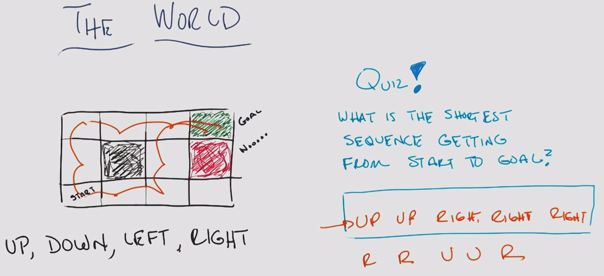 THE WORLD
GOAL
NOOOOO
START
UP, DOWN, LEFT, RIGHT
QUIZ!
WHAT IS THE SHORTEST
SEQUENCE GETTING
FROM START TO GOAL?
UP UP RIGHT RIGHT RIGHT
R R U U R